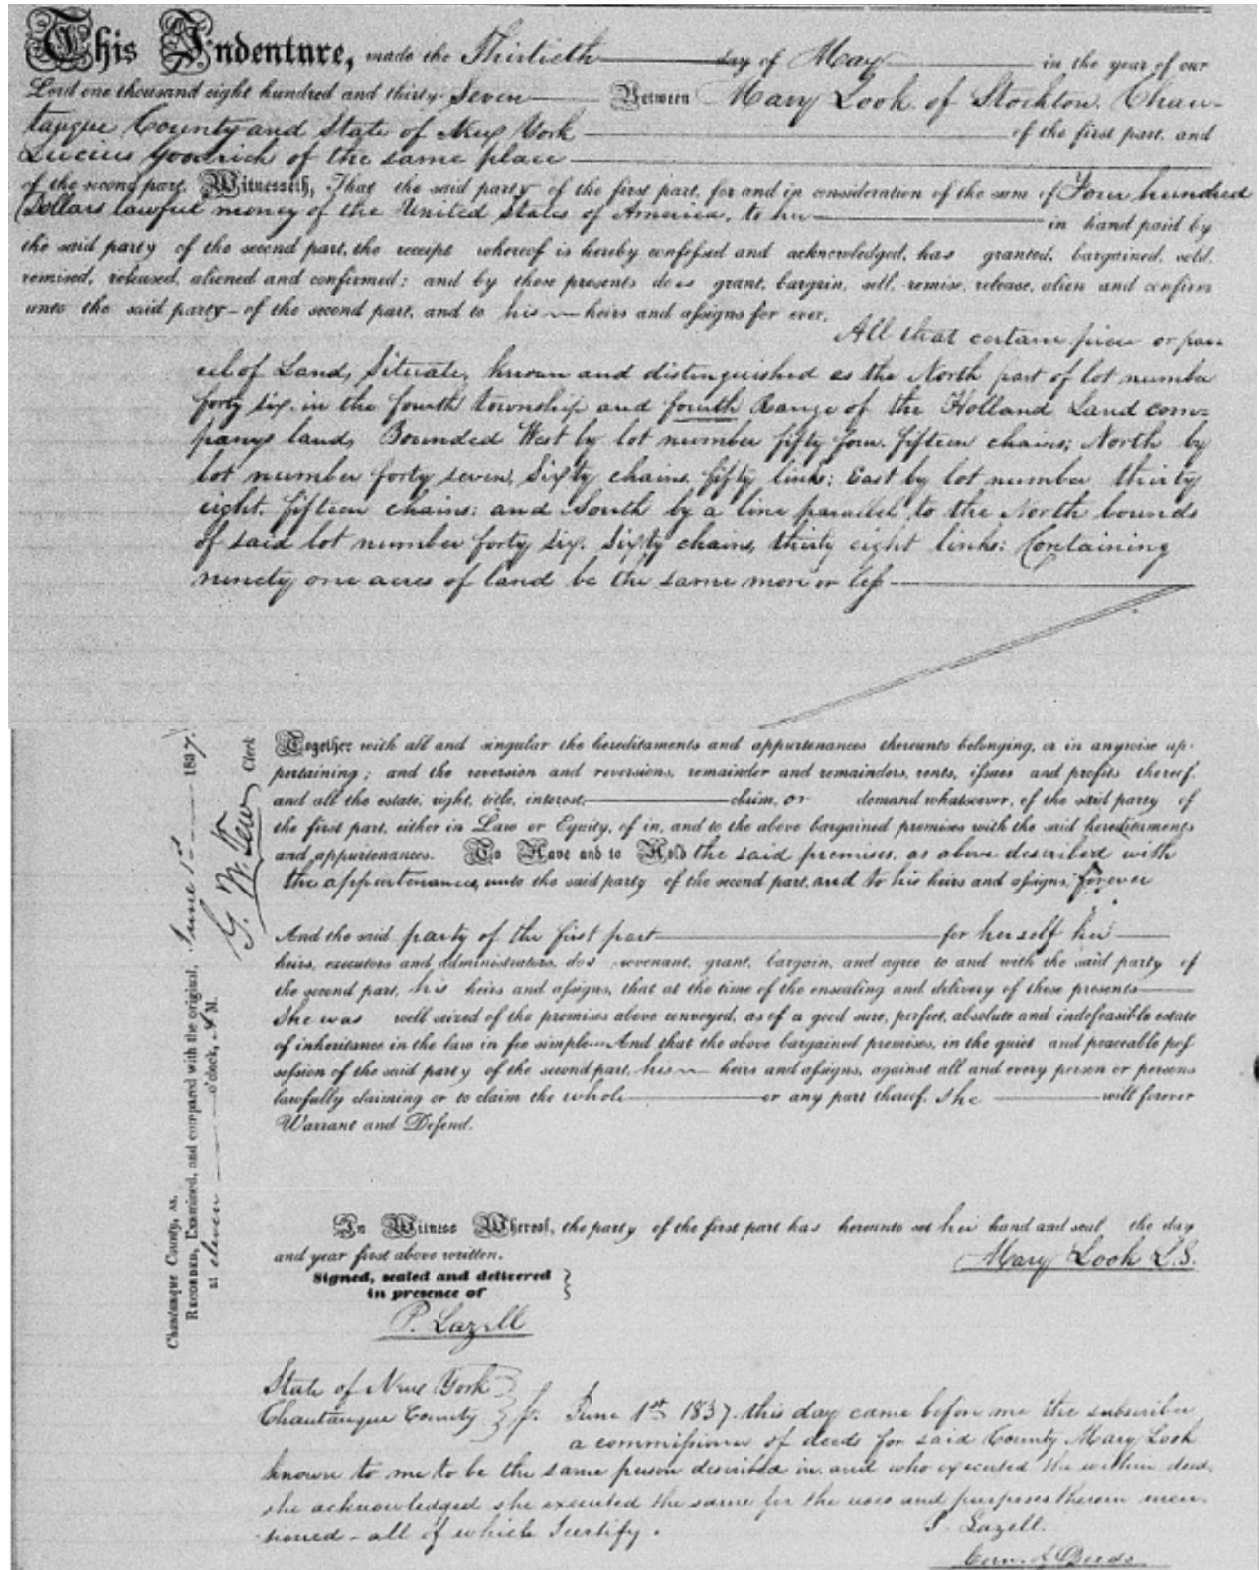 This Indenture, made the Thirtieth day of May in the year of our
Lord one thousand eight hundred and thirty Seven Between Mary Look of Stockton, Chau-
tauque County and State of New York of the first part, and
Lucius Goodrich of the same place
of the second part. Witnesseth, That the said party of the first part, for and in consideration of the sum of Four hundred
Dollars lawful money of the United States of America, to her in hand paid by
the said party of the second part, the receipt whereof is hereby confessed and acknowledged, has granted, bargained, sold,
remised, released, aliened and confirmed; and by these presents does grant, bargain, sell, remise, release, alien and confirm
unto the said party of the second part, and to his heirs and assigns for ever. 
All that certain piece or par
cel of Land, Situate, known and distinguished as the North part of lot number
forty six. in the fourth township and fourth Range of the Holland Land com-
panys land, Bounded West by lot number fifty four. fifteen chains; North by
lot number forty seven, Sixty chains, fifty links; East by lot number thirty
eight. fifteen chains; and South by a line parallel to the North bounds
of said lot number forty six. Sixty chains, thirty eight links: Containing
ninety one acres of land be the same more or less
Together with all and singular the hereditaments and appurtenances thereunto belonging, or in anywise ap-
pertaining; and the reversion and reversions, remainder and remainders, rents, issues and profits thereof,
and all the estate, right, title, interest, claim, or demand whatsoever, of the said party of
the first part, either in Law or Equity, of in, and to the above bargained premises with the said hereditaments
and appurtenances. To Have and to Hold the said premises, as above described with
the appurtenances, unto the said party of the second part, and to his heirs and assigns, forever
And the said party of the first part for herself her
heirs, executors and administrators, does covenant, grant, bargain, and agree to and with the said party of
the second part, his heirs and assigns, that at the time of the ensealing and delivery of these presents
She was well seized of the premises above conveyed, as of a good sure, perfect, absolute and indefeasible estate
of inheritance in the law in fee simple And that the above bargained premises, in the quiet and peaceable pos
session of the said party of the second part, his heirs and assigns, against all and every person or persons
lawfully claiming or to claim the whole or any part thereof, she will forever
Warrant and Defend.
In Witness Whereof, the party of the first part has hereunto set her hand and seal the day
and year first above written.
Mary Look L.S.
Signed, sealed and delivered
in presence of
P. Lazell
State of New York
Chautauque County ss. June 1st 1837. this day came before me the subscriber
a commissioner of deeds for said County Mary Look
known to me to be the same person described in and who executed the within deed,
she acknowledged she executed the same for the uses and purposes therein men-
tioned - all of which I certify.
P. Lazell.
Com. of Deeds
Chautauque County, ss.
RECORDED, Examined, and compared with the original, June 1st 1837.
at eleven o'clock, A M.
Clerk